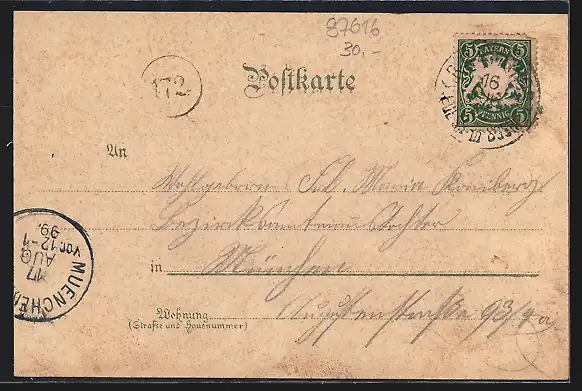 87616
30.-
172
Postkarte
5 BAYERN 5
5 PFENNIG 5
16
An
Wohlgeboren Frl. Maria
Bezirksamtmannstochter
in München
Wohnung Augustenstraße 93/4 a
(Straße und Hausnummer)
MUENCHEN
17
AUG
Vor. 12-1
99.